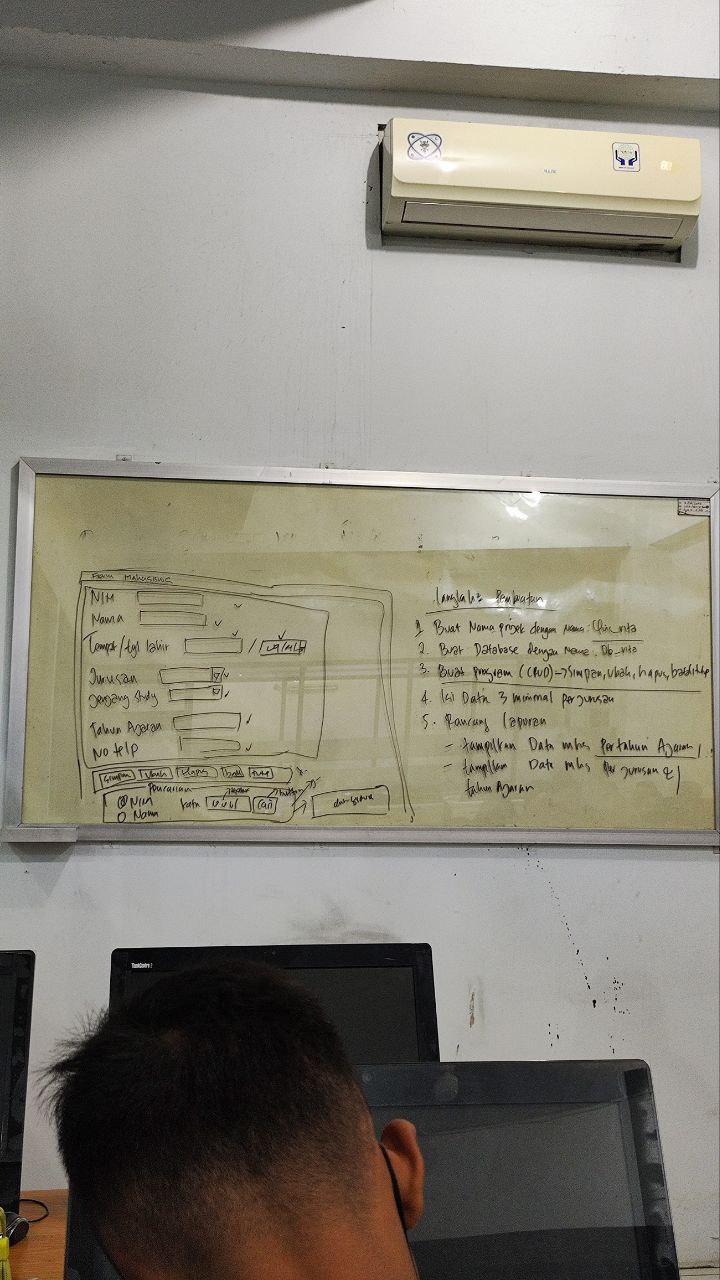 Form Mahasiswa
NIM
Nama
Tempat/tgl lahir /
Jurusan
Jenjang Study
Tahun Ajaran
No telp
Simpan Ubah Hapus batal tutup
Pencarian
NIM kata cari
Nama
Pembuatan
1. Buat Nama projek dengan nama:
2. Buat Database dengan Nama:
3. Buat program (CRUD) → Simpan, ubah, hapus, batal, tutup
4. Isi Data 3 minimal perjurusan
5. Rancang laporan
- tampilkan Data mhs Pertahun Ajaran
- tampilkan Data mhs Per jurusan &
tahun Ajaran
ThinkCentre